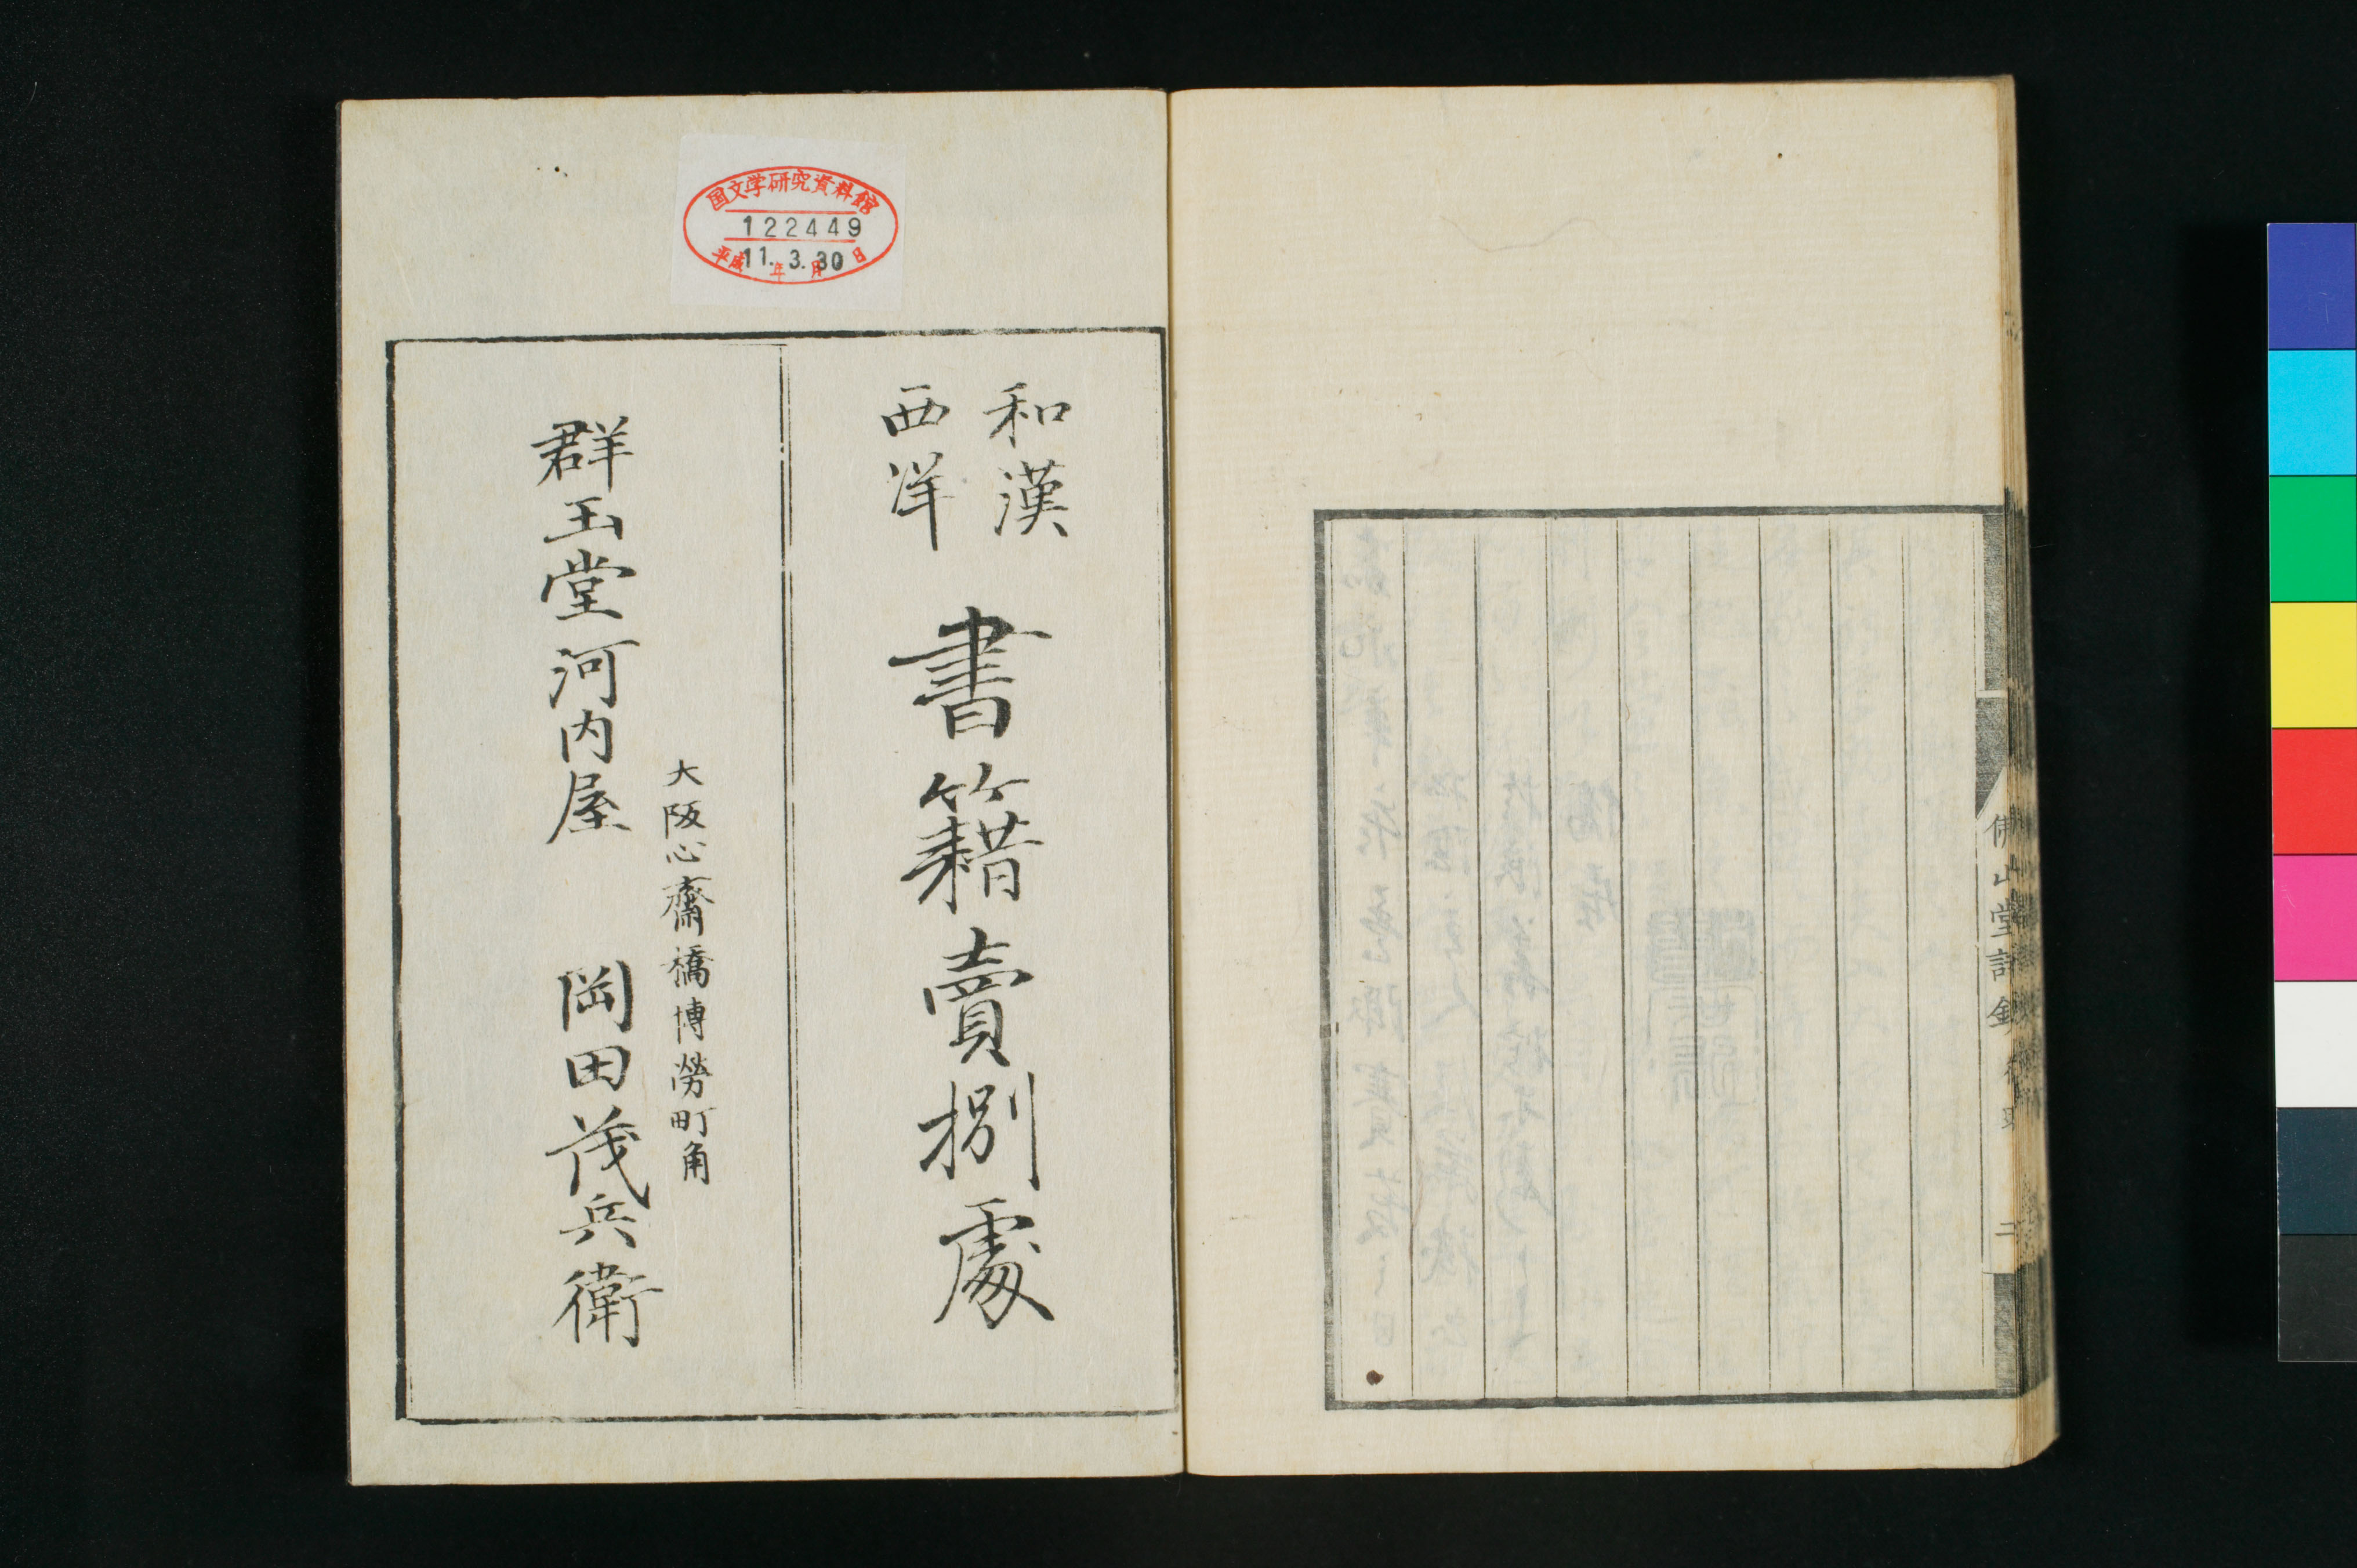 佛山堂詩鈔
二
国文学研究資料館
122449
平成11年3月30日
和漢
西洋
書籍賣捌處
大阪心齋橋博勞町角
群玉堂河内屋 岡田茂兵衛